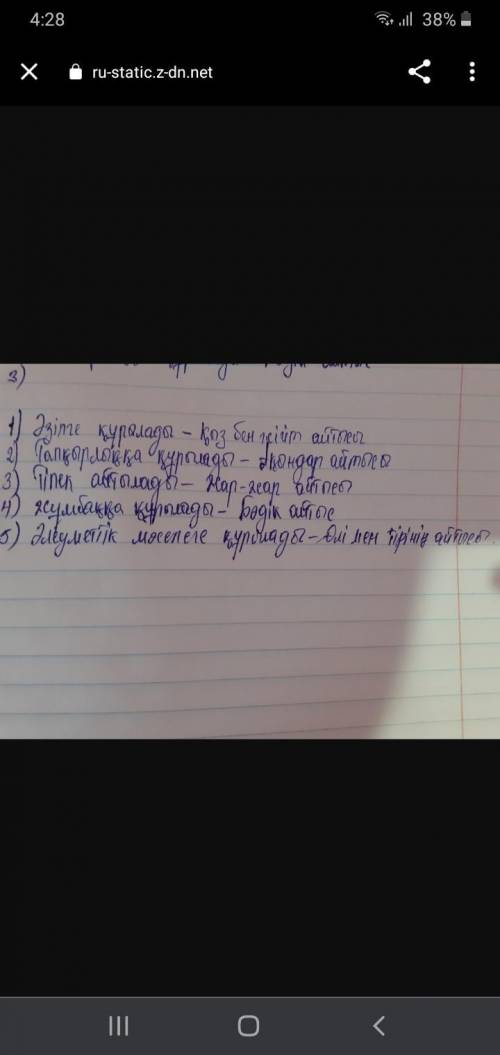 4:28 38%
ru-static.z-dn.net
3)
1) Әзілге құралады – Қыз бен жігіт айтысы
2) Тапқырлыққа құрылады – Ақындар айтысы
3) Тілек айтылады – Жар-жар айтысы
4) Жұмбаққа құрылады – Бәдік айтыс
5) Әлеуметтік мәселеге құрылады – Өлі мен тірінің айтысы.